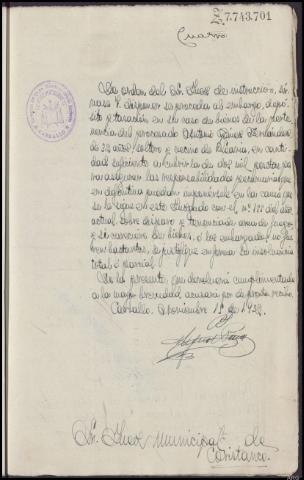 7.743.701
Cuarso
De orden del Sr. Juez de instrucción, sír-
vase V. disponer se proceda al embargo, depó-
sito y tasación en su caso de bienes de la perte-
nencia del procesado
de 32 años, soltero y vecino de en canti-
dad suficiente a cubrir la de dos mil pesetas pa-
ra asegurar las responsabilidades pecuniarias que
en definitiva puedan imponérsele en la causa que
se le sigue en este Juzgado con el nº 122 del año
actual sobre disparo y tenencia de arma de fuego
y si careciere de bienes, o los embargados no fue-
ren bastantes, se justifique en forma la insolvencia
total o parcial.
De la presente, que devolverá cumplimentada
a la mayor brevedad, acusará por de pronto recibo.
Carballo, Noviembre 1º de 19
Sr. Juez Municipal de
Coristanco.